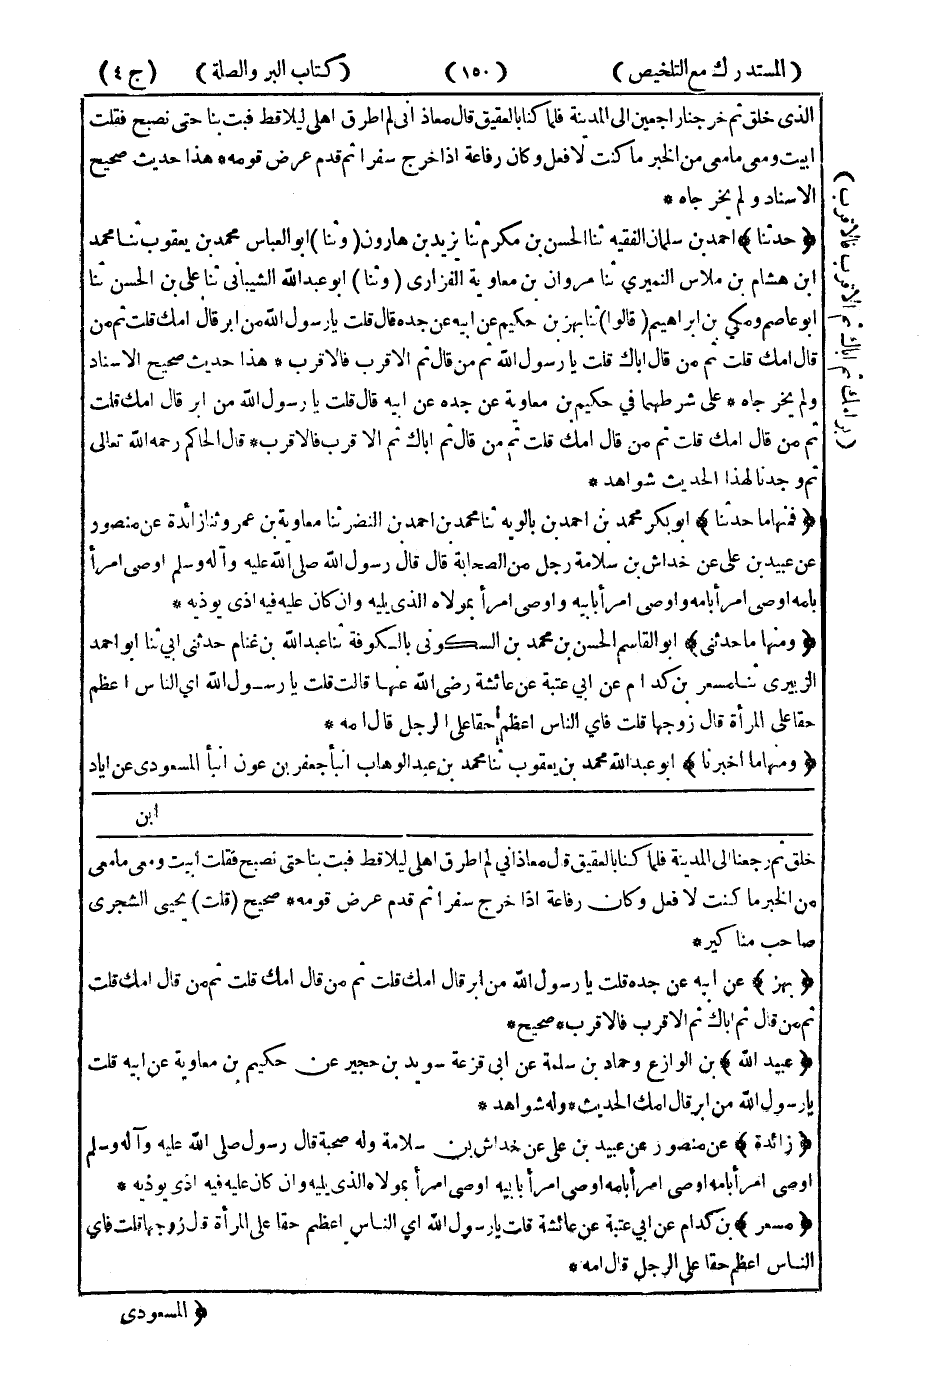 (المستدرك مع التلخيص) (١٥٠) (كتاب البر والصلة) (ج ٤)
الذى خلق ثم خرجنا راجعين الى المدينة فلما كنا بالعقيق قال معاذ انى لم اطرق اهلى ليلا قط فبت بنا حتى نصبح فقلت
ابيت ومعى ما معى من الخبر ما كنت لافعل وكان رفاعة اذا خرج سفرا ثم قدم عرض قومه * هذا حديث صحيح
الاسناد ولم يخرجاه *
﴿ حدثنا ﴾ احمد بن سلمان الفقيه ثنا الحسن بن مكرم ثنا يزيد بن هارون (وثنا) ابو العباس محمد بن يعقوب ثنا محمد
ابن هشام بن ملاس النميري ثنا مروان بن معاوية الفزارى (وثنا) ابو عبد الله الشيبانى ثنا على بن الحسن ثنا
ابو عاصم ومكي بن ابراهيم (قالوا) ثنا بهز بن حكيم عن ابيه عن جده قال قلت يا رسول الله من ابر قال امك قلت ثم من
قال امك قلت ثم من قال اباك قلت يا رسول الله ثم من قال ثم الاقرب فالاقرب * هذا حديث صحيح الاسناد
ولم يخرجاه * على شرطهما في حكيم بن معاوية عن جده عن ابيه قال قلت يا رسول الله من ابر قال امك قلت
ثم من قال امك قلت ثم من قال امك قلت ثم من قال ثم اباك ثم الاقرب فالاقرب * قال الحاكم رحمه الله تعالى
ثم وجدنا لهذا الحديث شواهد *
﴿ فمنها ما حدثنا ﴾ ابو بكر محمد بن احمد بن بالويه ثنا محمد بن احمد بن النضر ثنا معاوية بن عمرو ثنا زائدة عن منصور
عن عبيد بن على عن خداش بن سلامة رجل من الصحابة قال قال رسول الله صلى الله عليه وآله وسلم اوصى امرأ
بامه اوصى امرأ بامه واوصى امرأ بابيه واوصى امرأ بمولاه الذى يليه وان كان عليه فيه اذى يوذيه *
﴿ ومنها ما حدثنى ﴾ ابو القاسم الحسن بن محمد بن السكونى بالكوفة ثنا عبد الله بن غنام حدثنى ابي ثنا ابو احمد
الزبيرى ثنا مسعر بن كدام عن ابي عتبة عن عائشة رضى الله عنها قالت قلت يا رسول الله اي الناس اعظم
حقا على المرأة قال زوجها قلت فاي الناس اعظم حقا على الرجل قال امه *
﴿ ومنها ما اخبرنا ﴾ ابو عبد الله محمد بن يعقوب ثنا محمد بن عبد الوهاب انبأ جعفر بن عون انبأ المسعودى عن اياد
ابن
(بر امك ثم اباك ثم الاقرب فالاقرب)
خلق ثم رجعنا الى المدينة فلما كنا بالعقيق قال معاذ اني لم اطرق اهلى ليلا قط فبت بنا حتى نصبح فقلت أبيت ومعى ما معى
من الخبر ما كنت لا فعل وكان رفاعة اذا خرج سفرا ثم قدم عرض قومه * صحيح (قلت) يحيى الشجرى
صاحب مناكير *
﴿ بهز ﴾ عن ابيه عن جده قلت يا رسول الله من ابر قال امك قلت ثم من قال امك قلت ثم من قال امك قلت
ثم من قال ثم اباك ثم الاقرب فالاقرب * صحيح *
﴿ عبيد الله ﴾ بن الوازع وحماد بن سلمة عن ابى قزعة سويد بن حجير عن حكيم بن معاوية عن ابيه قلت
يا رسول الله من ابر قال امك الحديث * وله شواهد *
﴿ زائدة ﴾ عن منصور عن عبيد بن على عن خداش بن سلامة وله صحبة قال رسول صلى الله عليه وآله وسلم
اوصى امرأ بامه اوصى امرأ بامه اوصى امرأ بابيه اوصى امرأ بمولاه الذى يليه وان كان عليه فيه اذى يوذيه *
﴿ مسعر ﴾ بن كدام عن ابي عتبة عن عائشة قلت يا رسول الله اي الناس اعظم حقا على المرأة قال زوجها قلت فاي
الناس اعظم حقا على الرجل قال امه *
﴿ المسعودى